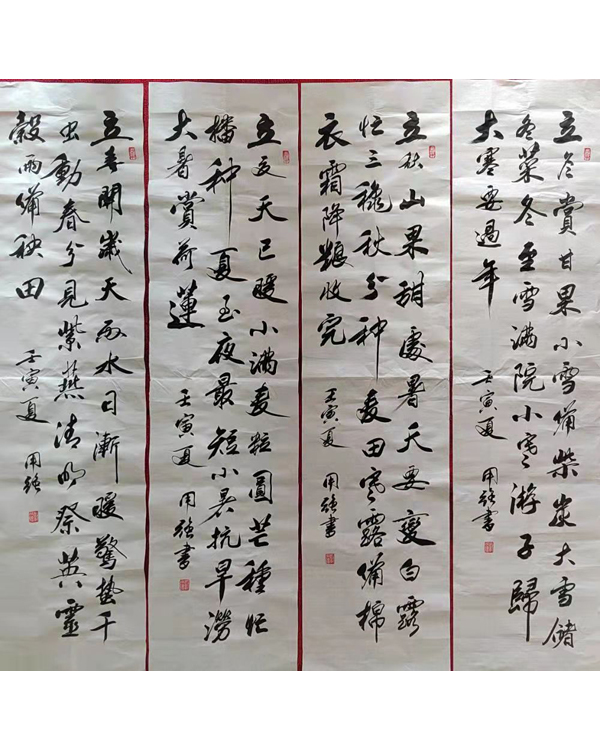 立春開歲天雨水日漸暖驚蟄千
虫動春分見紫燕清明祭英靈
穀雨備秧田
壬寅夏 用強
立夏天已暖小滿麦粒圓芒種忙
播种夏至夜最短小暑抗旱澇
大暑賞荷蓮
壬寅夏 用強書
立秋山果甜處暑天要變白露
忙三穐秋分种麦田寒露備棉
衣霜降糧收完
壬寅夏 用強書
立冬賞甘果小雪備柴炭大雪儲
冬菜冬至雪滿院小寒游子歸
大寒要過年
壬寅夏 用強書